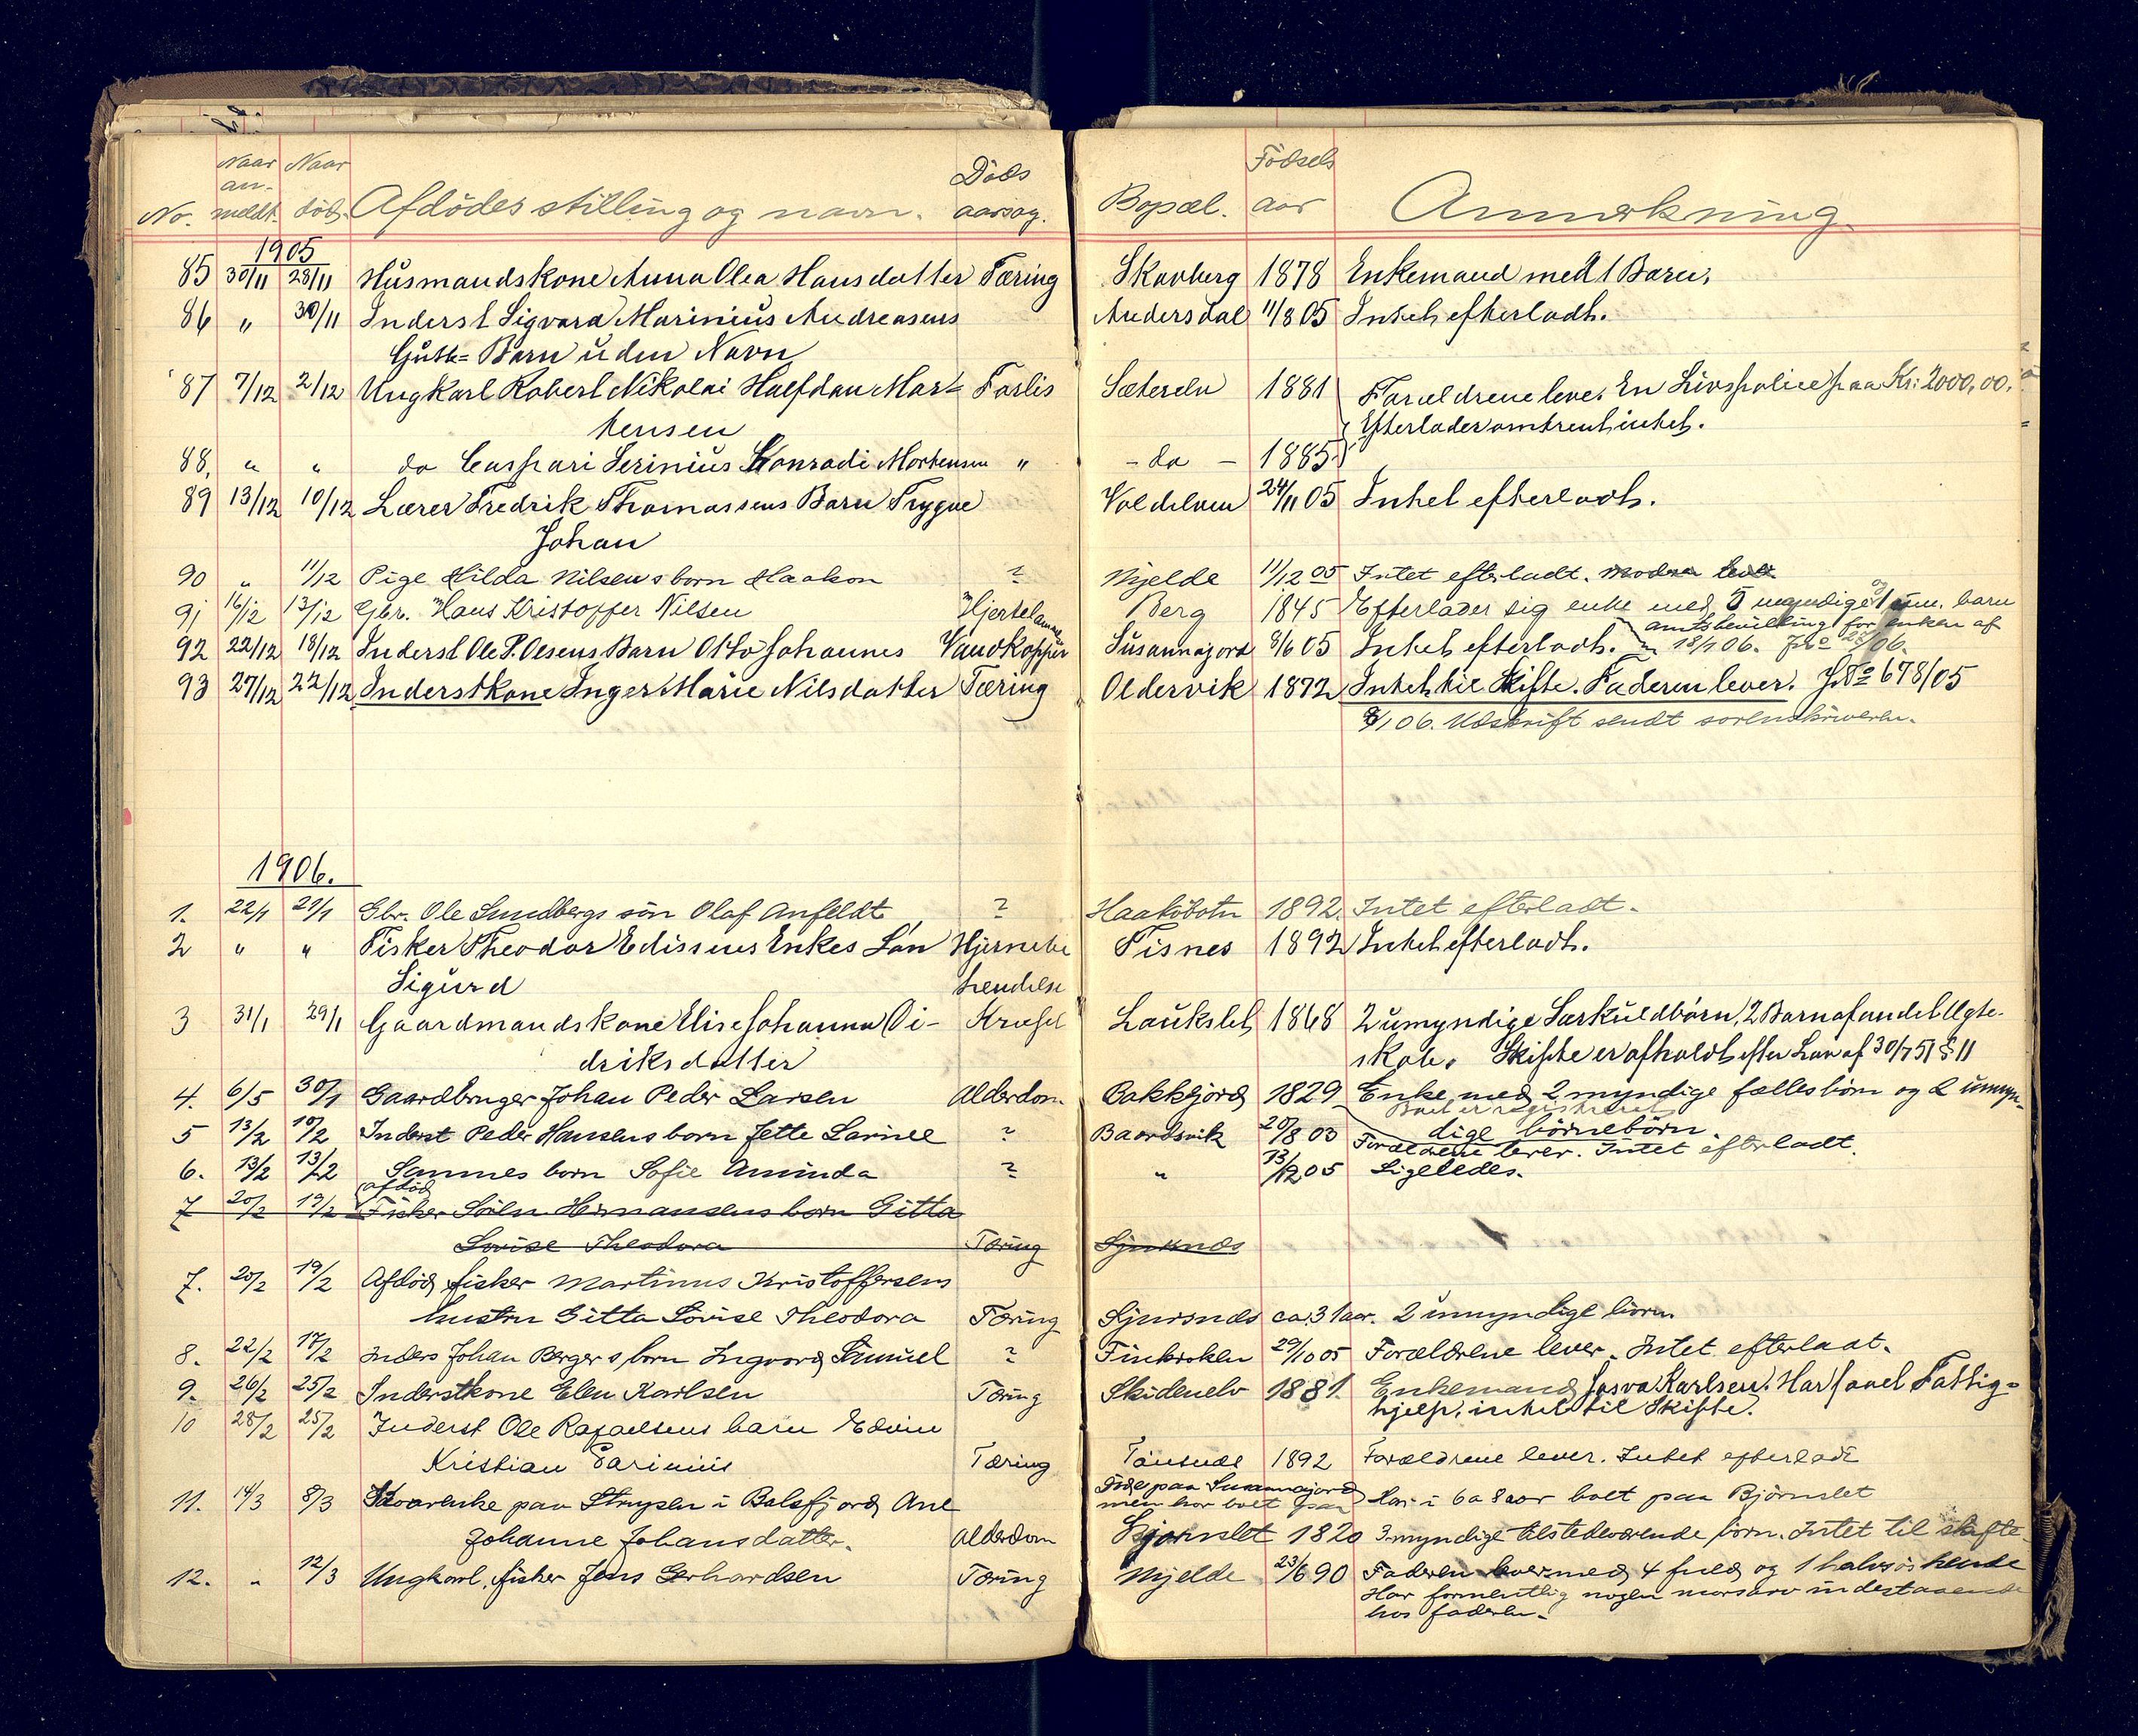 No. Naar anmeldt. Naar död. Afdödes stilling og navn. Döds aarsag. Bopæl. Födsels aar Anmærkning.
1905
85 30/11 28/11 Husmandskone Anna Olea Hansdatter Tæring Skavberg 1878 Enkemand med 1 Barn.
86 " 30/11 Inderst Sigvard Marinius Andreasens Andersdal 11/8 05 Intet efterladt.
Gutte=Barn uden Navn
87 7/12 2/12 Ungkarl Robert Nikolai Halfdan Mor= Forlis Sæterelv 1881 Forældrene leve. En Livspolice paa Kr: 2000,00.
tensen Efterlader omtrent intet.
88, " " do Caspari Serinius Konradi Mortensen " - do - 1885
89 13/12 10/12 Lærer Fredrik Thomassens Barn Trygve Voldelven 24/11 05 Intet efterladt.
Johan
90 " 11/12 Pige Hilda Nilsens born Haakon ? Mjelde 11/12 05 Intet efterladt. Modren lever
91 16/12 13/12 Gbr. Hans Kristoffer Nilsen Hjertelamme Berg 1845 Efterlader sig enke med myndige og 1 um. barn
amtsbevilling for enken af
92 22/12 18/12 Inderst Ole P. Olsens Barn Otto Johannes Vandkopper Susannajord 8/6 05 Intet efterladt. 18/1 06.
93 27/12 22/12 Inderstkone Inger Marie Nilsdatter Tæring Oldervik 1872 Intet til Skifte. Faderen lever. JNo 678/05
8/1 06. Udskrift sendt sorenskriveren.
1906.
1. 22/1 21/1 Gbr. Ole Sundbergs sön Olaf Anfeldt ? Haaköbotn 1892. Intet efterladt.
2 " " Fisker Theodor Edissens Enkes Sön Hjernebe Tisnes 1892 Intet efterladt.
Sigurd tendelse
3 31/1 29/1 Gaardmandskone Elise Johanna Di- Kræft Laukslet 1868 2 umyndige Særkuldbörn, 2 Barn af andet Ægte-
driksdatter skab. Skifte er afholdt efter Lov af 30/7 51 § 11
4. 6/5 30/1 Gaardbruger Johan Peder Larsen Alderdom Bakkejord 1829 Enke med 2 myndige fællesbörn og 2 umyn-
Boet er registreret
dige börnebörn.
5 13/2 10/2 Inderst Peder Hansens born Jette Larine ? Baardsvik 20/8 03 Forældrene lever. Intet efterladt.
6. 13/2 13/2 Sammes born Sofie Aminda ? " 13/12 05 Ligeledes.
afdöd
7 20/2 19/2 Fisker Sören Hermansens born Gitta
Lovise Theodora Tæring Sjursnes
7. 20/2 19/2 Afdöd fisker Martinus Kristoffersens
hustru Gitta Lovise Theodora Tæring Sjursnes ca. 31 aar. 2 umyndige börn
8. 22/2 17/2 Inders Johan Bergers born Ingvard Samuel ? Finkroken 29/10 05 Forældrene lever. Intet efterladt.
9. 26/2 25/2 Inderstkone Elen Karlsen Tæring Skidenelv 1881. Enkemand Josva Karlsen. Har faaet Fattig=
hjelp, intet til Skifte.
10 28/2 25/2 Inderst Ole Rafaelsens barn Edvin
Kristian Parinius Tæring Tönsnes 1892 Forældrene lever. Intet efterladt
11. 14/3 8/3 Kaarenke paa Strupen i Balsfjord Ane Död paa Susannajord men har boet paa Har i 6 a 8 aar boet paa Björnslet
Johanne Johansdatter. Alderdom Bjornslet 1820 3 myndige tilstedeværende börn. Intet til skifte
12. " 12/3 Ungkarl, fisker Jens Gerhardsen Tæring Mjelde 23/6 90 Faderen lever med 4 fuld og 1 halvsöskende
Har formentlig nogen morsarv indestaaende
hos faderen.